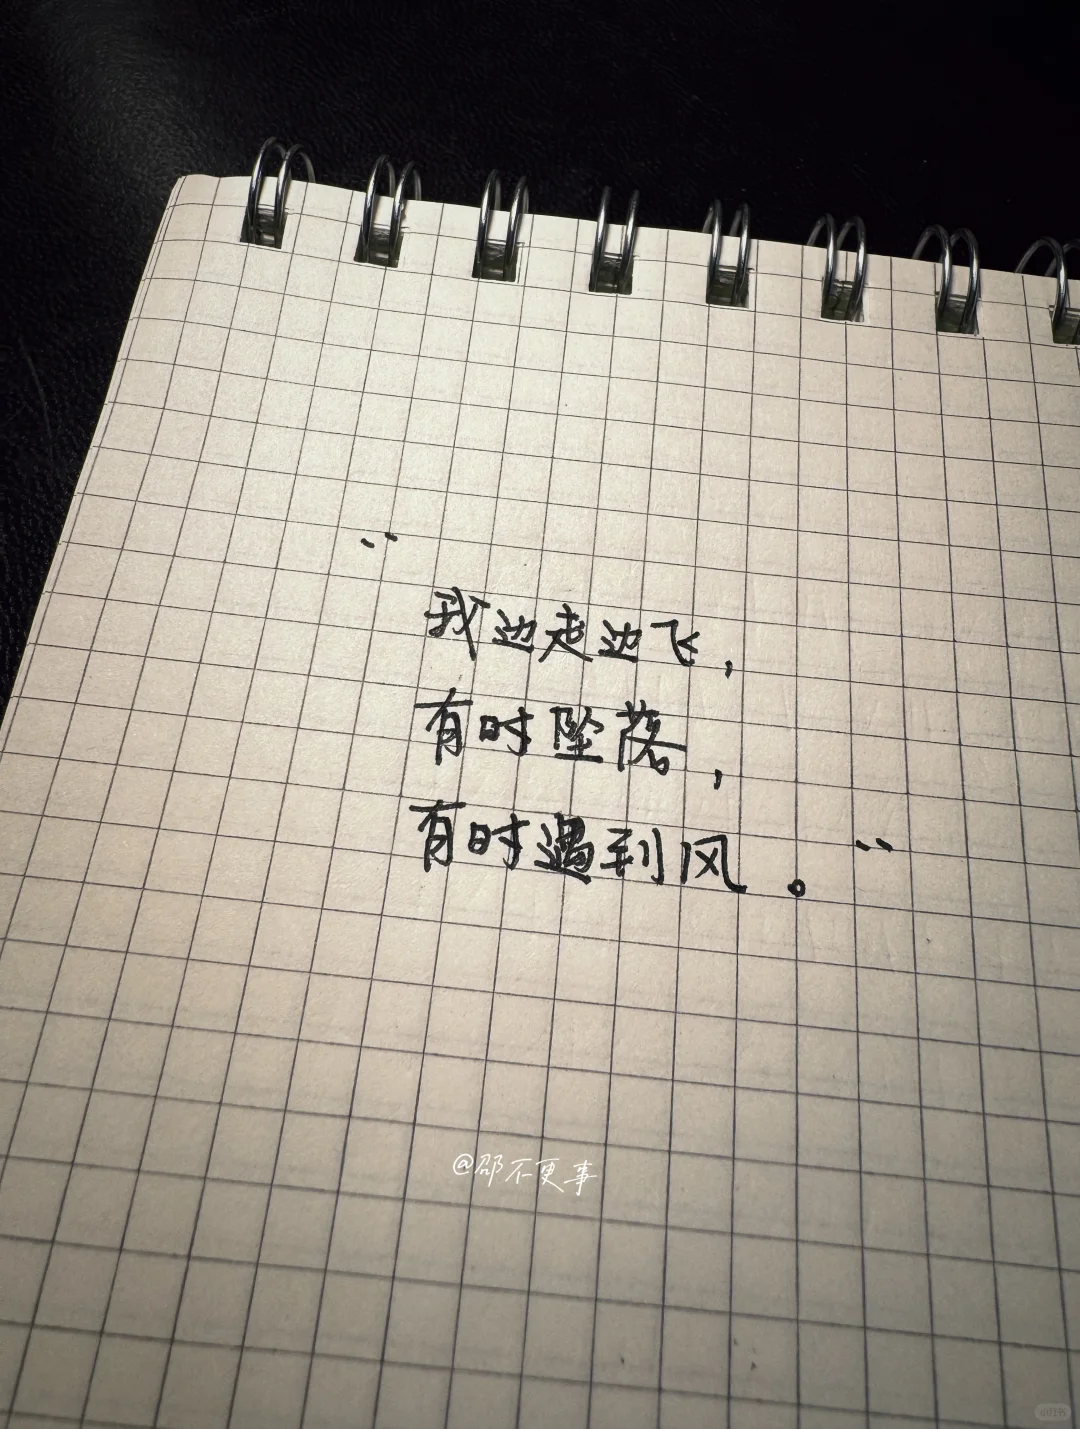 “
我边走边飞，
有时坠落，
有时遇到风。”
@邵不更事
小红书